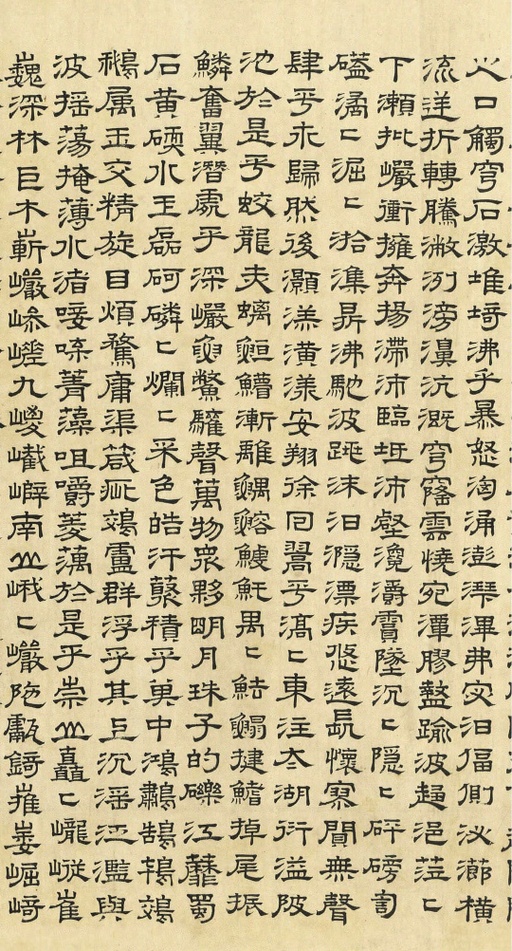 之口觸穹石激堆埼沸乎暴怒洶涌澎湃滭弗宓汩偪側泌瀄橫
流逆折轉騰潎洌滂濞沆溉穹窿雲橈宛潬膠盭踰波趨浥蒞々
下瀨批巖衝擁奔揚滯沛臨坻沛壑瀺灂霣墜沉々隱々砰磅訇
磕潏々淈々湁潗鼎沸馳波跳沫汩濦漂疾悠遠長懷寂閴無聲
肆乎永歸然後灝溔潢漾安翔徐回翯乎滈々東注太湖衍溢陂
池於是乎蛟龍赤螭䱭䲛漸離鰅鰫鰬魠禺々魼鰨揵鰭掉尾振
鱗奮翼潛處乎深巖魚鱉讙聲萬物衆夥明月珠子的礫江靡蜀
石黃碝水玉磊砢磷々爛々采色皓汗藂積乎其中鴻鷫鵠鴇鵁
鵝属玉交精旋目煩鶩庸渠箴疵鵁盧群浮乎其上沉淫泛濫與
波搖蕩掩薄水渚唼喋菁藻咀嚼菱藕於是乎崇山矗々巃嵷崔
巍深林巨木嶄巖嵾嵳九嵏巀嶭南山峨々巖陁甗錡嶊崣崛崎